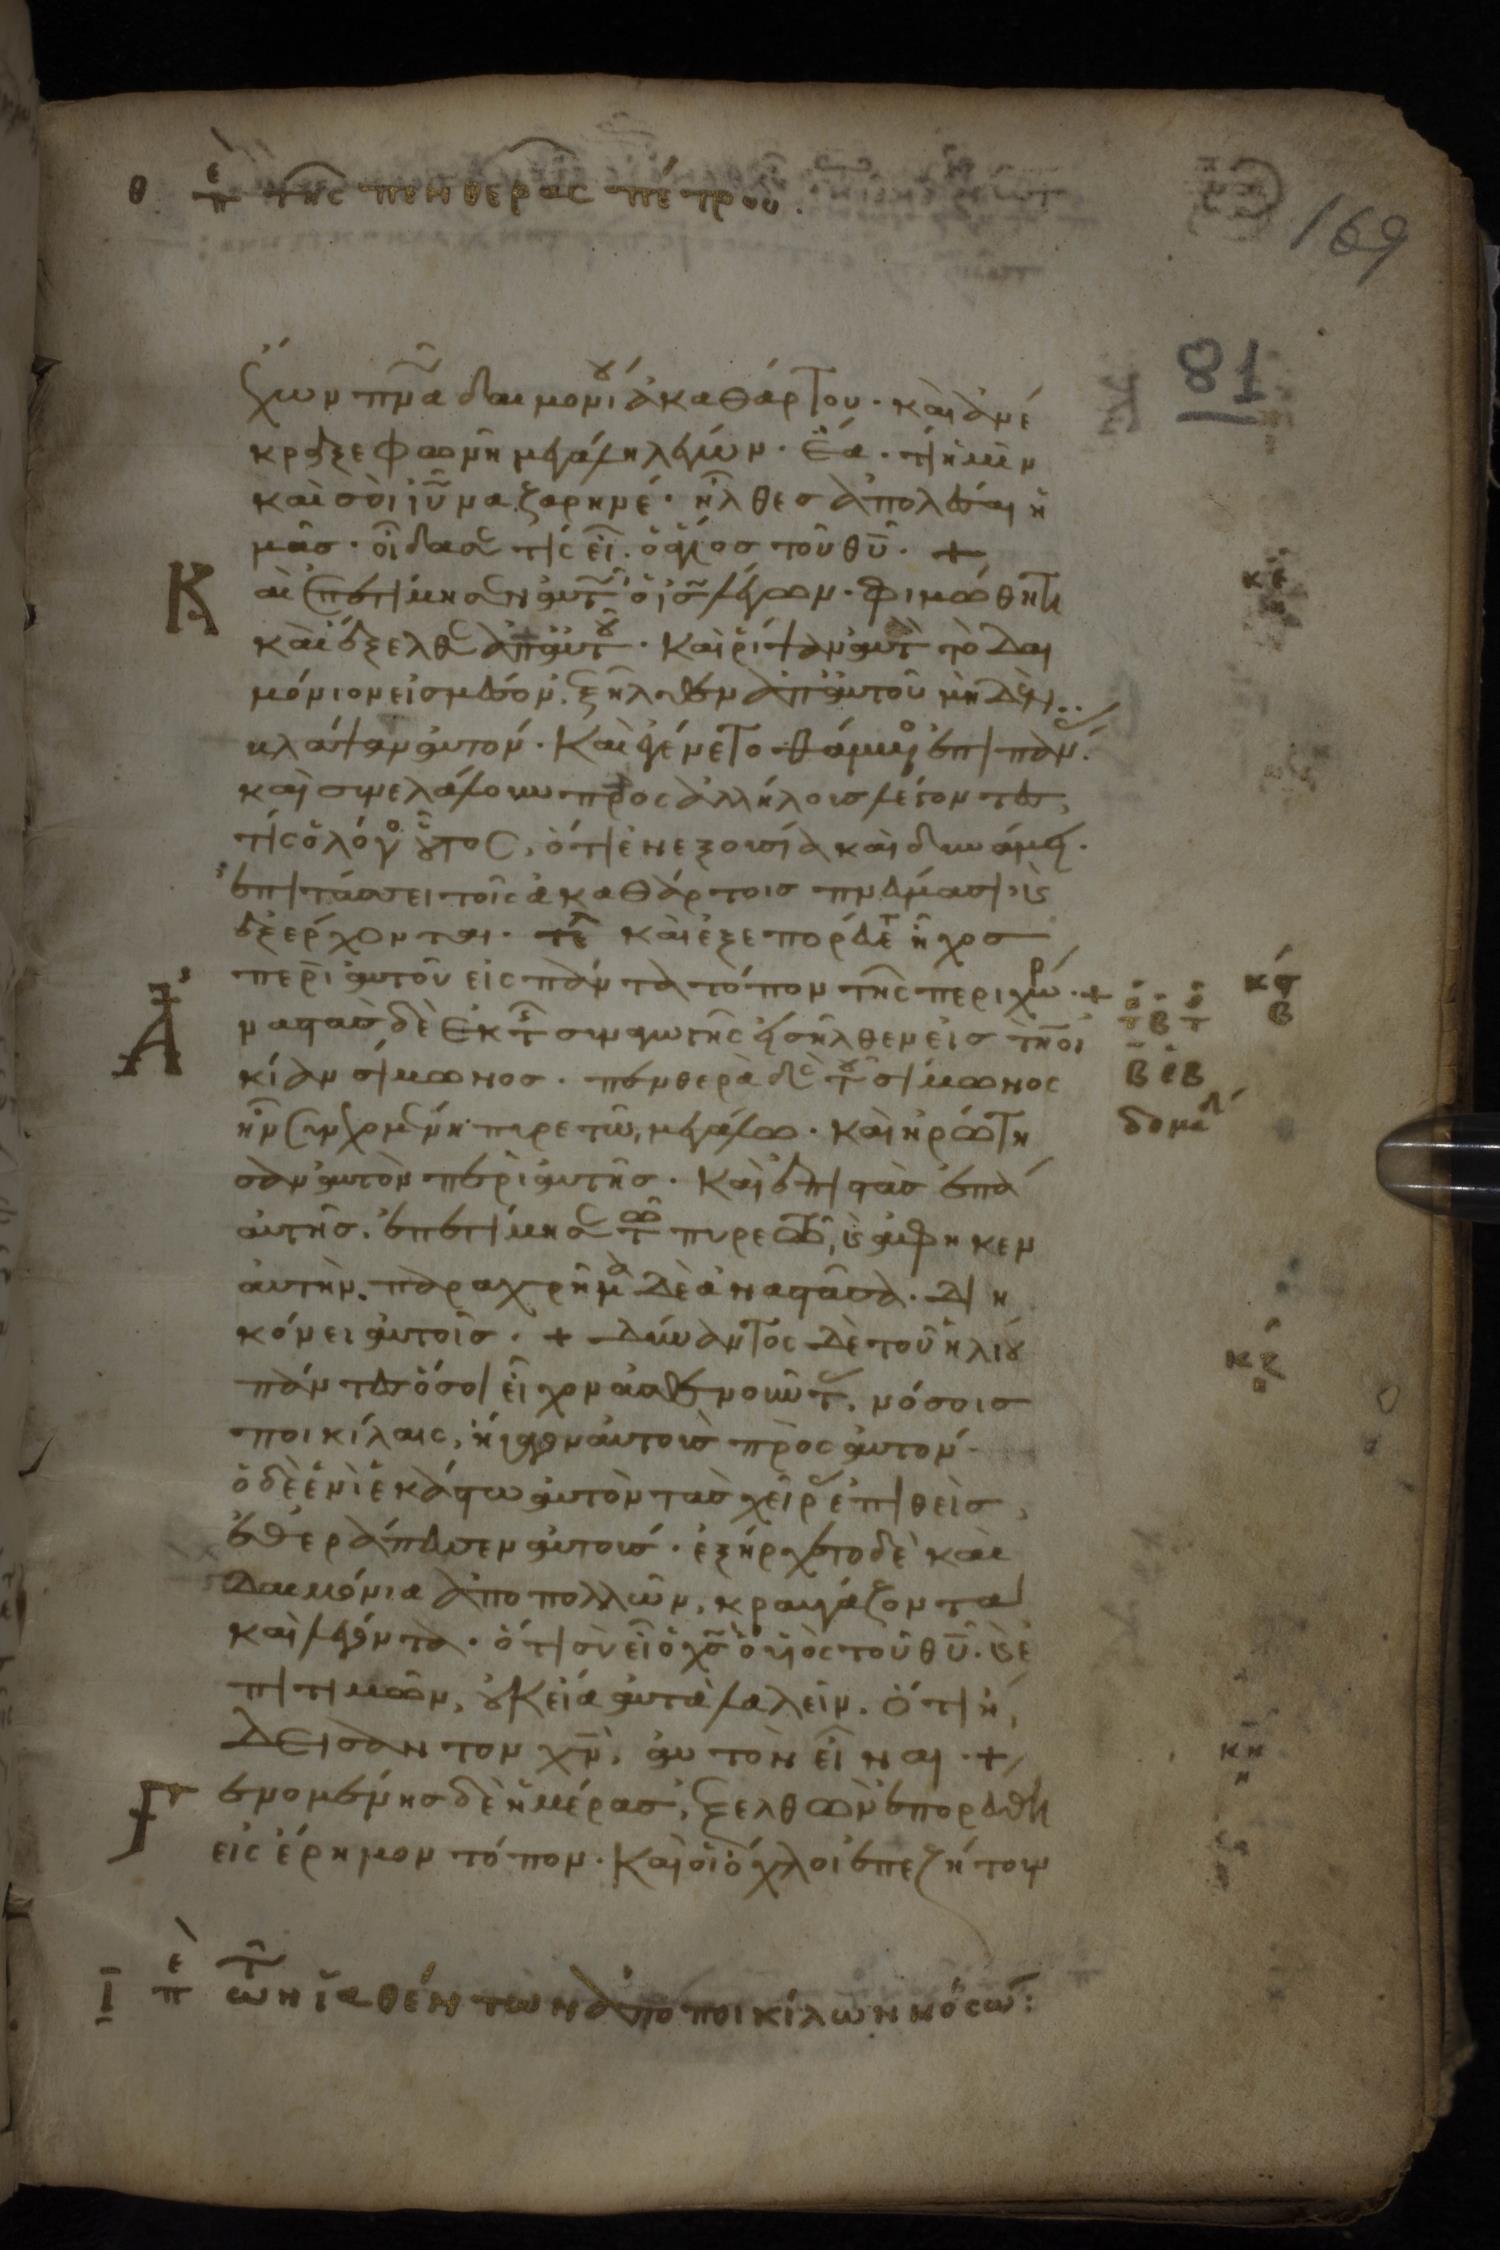 θ πε της πενθερας πέτρου.
169
81
ἔχων πνᾶ δαιμονίου ἀκαθάρτου· καὶ ἀνέ
κραξε φωνῆ μεγάλη λέγων· ἔα· τί ἡμῖν
καὶ σοὶ ιῦ ναζαρηνέ· ἦλθες ἀπολέσαι ἡ
μᾶς· οἶδα σε τίς εἶ. ὁ ἅγιος τοῦ θῦ· +
Κ αὶ ἐπετίμησεν αὐτῶ ὁ ις λέγων· φιμώθητι
καὶ ἔξελθε ἀπ αὐτοῦ· Καὶ ρίψαν αὐτὸ τὸ δαι
μόνιον εἰς μέσον, ἐξῆλθεν ἀπ αὐτοῦ μηδὲν
βλάψαν αὐτόν· Καὶ ἐγένετο θάμβος ἐπὶ πάντ
καὶ συνελάλουν πρὸς ἀλλήλους λέγοντες,
τίς ὁ λόγος οὗτος, ὅτι ἐν ἐξουσία καὶ δυνάμει·
ἐπιτάσσει τοῖς ἀκαθάρτοις πνεύμασι, κ
ἐξέρχονται· τε καὶ ἐξεπορεύετ ἦχος
περὶ αὐτοῦ εἰς πάντα τόπον τῆς περιχώρ· +
κϛ
β
Ἀ ναστὰς δὲ ἐκ τ συναγωγῆς εἰσῆλθεν εἰς τὴν οἰ
κίαν σίμωνος· πενθερὰ δὲ τοῦ σίμωνος
ἦν συνεχομένη πυρετῶ, μεγάλω· καὶ ἠρώτη
σαν αὐτὸν περὶ αὐτῆς· Καὶ ἐπιστὰς ἐπά
αὐτῆς, ἐπετίμησε τῶ πυρετῶ, κ ἀφῆκεν
αὐτὴν. παραχρῆμα δὲ ἀναστᾶσα· διη
κόνει αὐτοῖς· + Δύναντος δὲ τοῦ ἡλίου
κζ
πάντες ὅσοι εἶχον ἀσθενοῦντ, νόσοις
ποικίλαις, ἤγαγον αὐτοὺς πρὸς αὐτόν·
ὁ δὲ ἑνὶ ἑκάστω αὐτῶν τὰς χεῖρ ἐπιθεὶς,
ἐθεράπευσεν αὐτούς· ἐξήρχετο δὲ καὶ
δαιμόνια ἀπο πολλῶν, κραυγάζοντα
καὶ λέγοντα· ὅτι σὺ εἶ ὁ χς ὁ υἱὸς τοῦ θῦ· κ ἐ
πιτιμῶν, οὐκ εἴα αὐτὰ λαλεῖν. ὅτι ἤ
δεισαν τον χν, αὐτὸν εἶναι· +
κη
Γ ενομένης δὲ ἡμέρας, ἐξελθὼν ἐπορεύθη
εἰς ἔρημον τόπον· Καὶ οἱ ὄχλοι ἐπεζήτουν
Ι πε τῶν ἰαθέντων ἀπο ποικίλων νόσων: